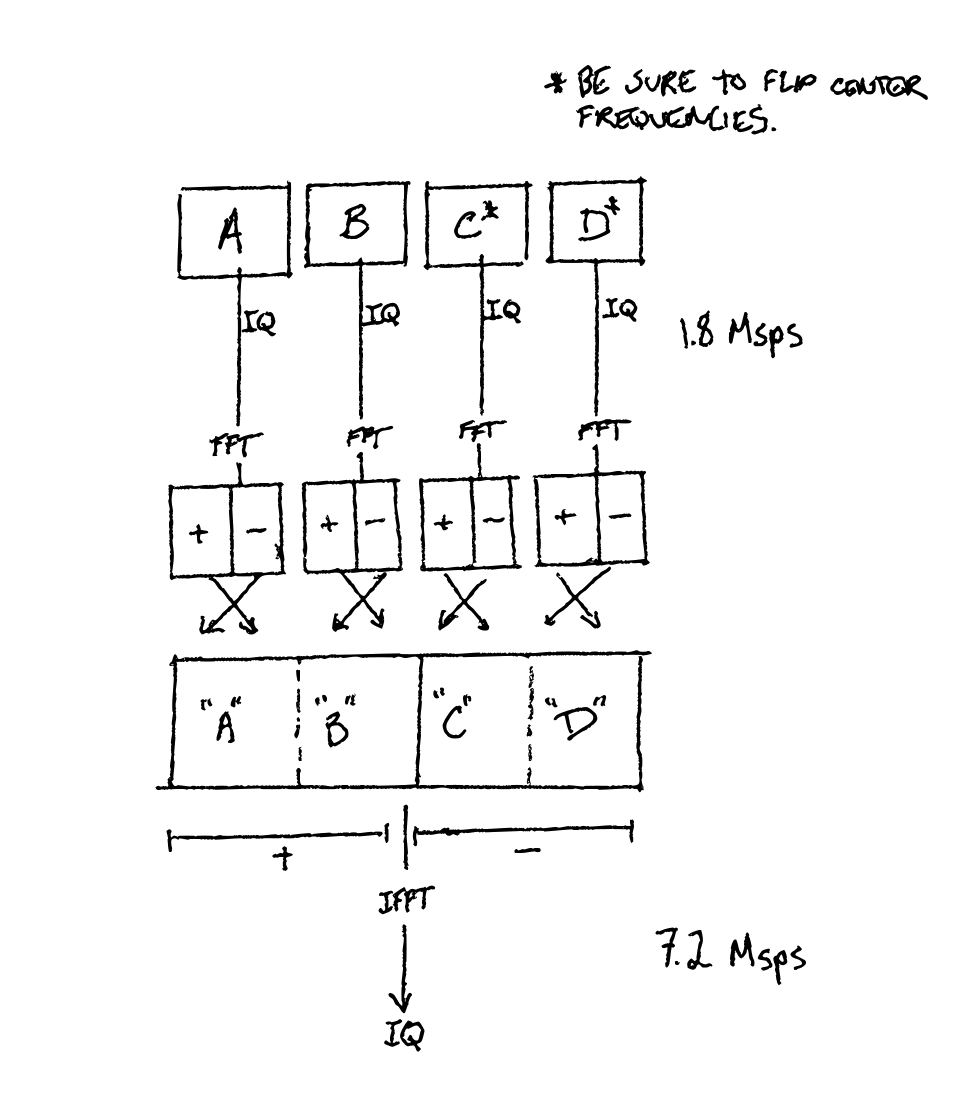 * BE SURE TO FLIP CENTER
FREQUENCIES.
A B C* D*
IQ IQ IQ IQ
1.8 Msps
FFT FFT FFT FFT
+ - + - + - + -
"A" "B" "C" "D"
+ -
IFFT
7.2 Msps
IQ